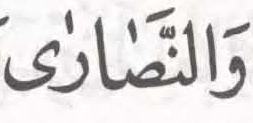 وَالنَّصٰارٰى